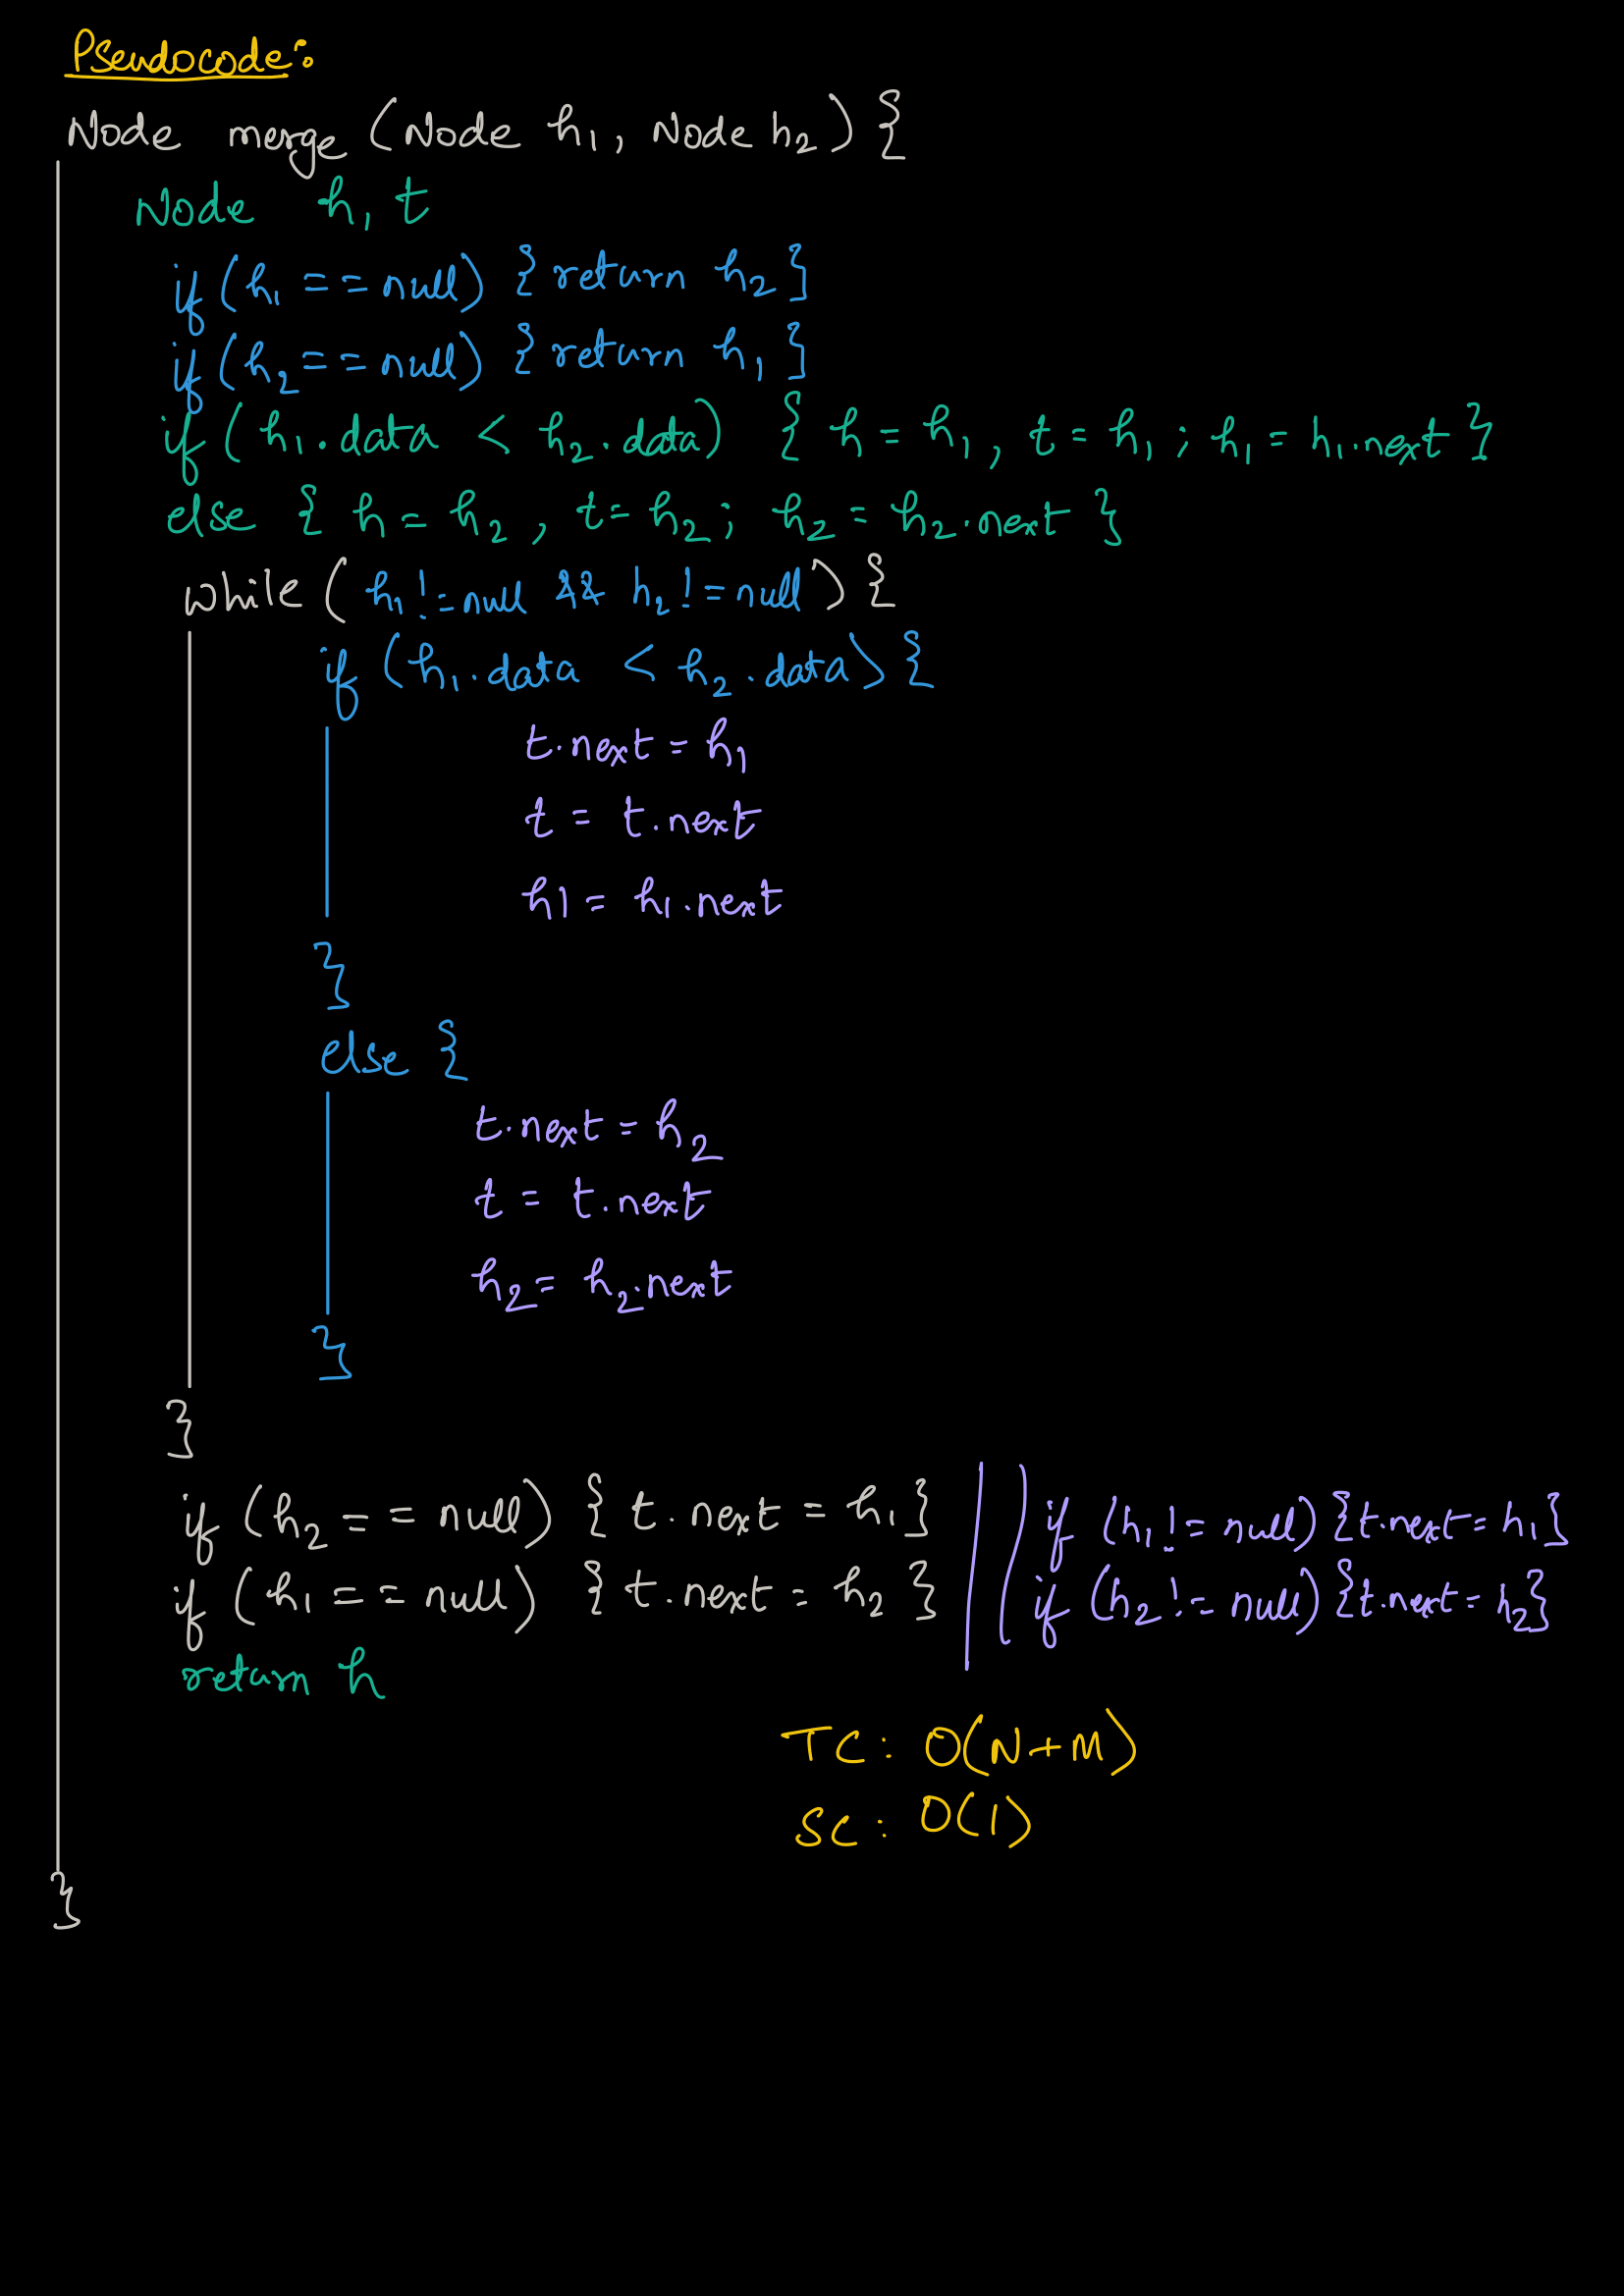 Pseudocode:
Node merge (Node h1, Node h2) {
Node h, t
if (h1 == null) { return h2 }
if (h2 == null) { return h1 }
if (h1.data < h2.data) { h = h1, t = h1; h1 = h1.next }
else { h = h2, t = h2; h2 = h2.next }
while ( h1 != null && h2 != null ) {
if (h1.data < h2.data) {
t.next = h1
t = t.next
h1 = h1.next
}
else {
t.next = h2
t = t.next
h2 = h2.next
}
}
if (h2 == null) { t.next = h1 } || if (h1 != null) {t.next = h1}
if (h1 == null) { t.next = h2 } if (h2 != null) {t.next = h2}
return h
TC: O(N+M)
SC: O(1)
}